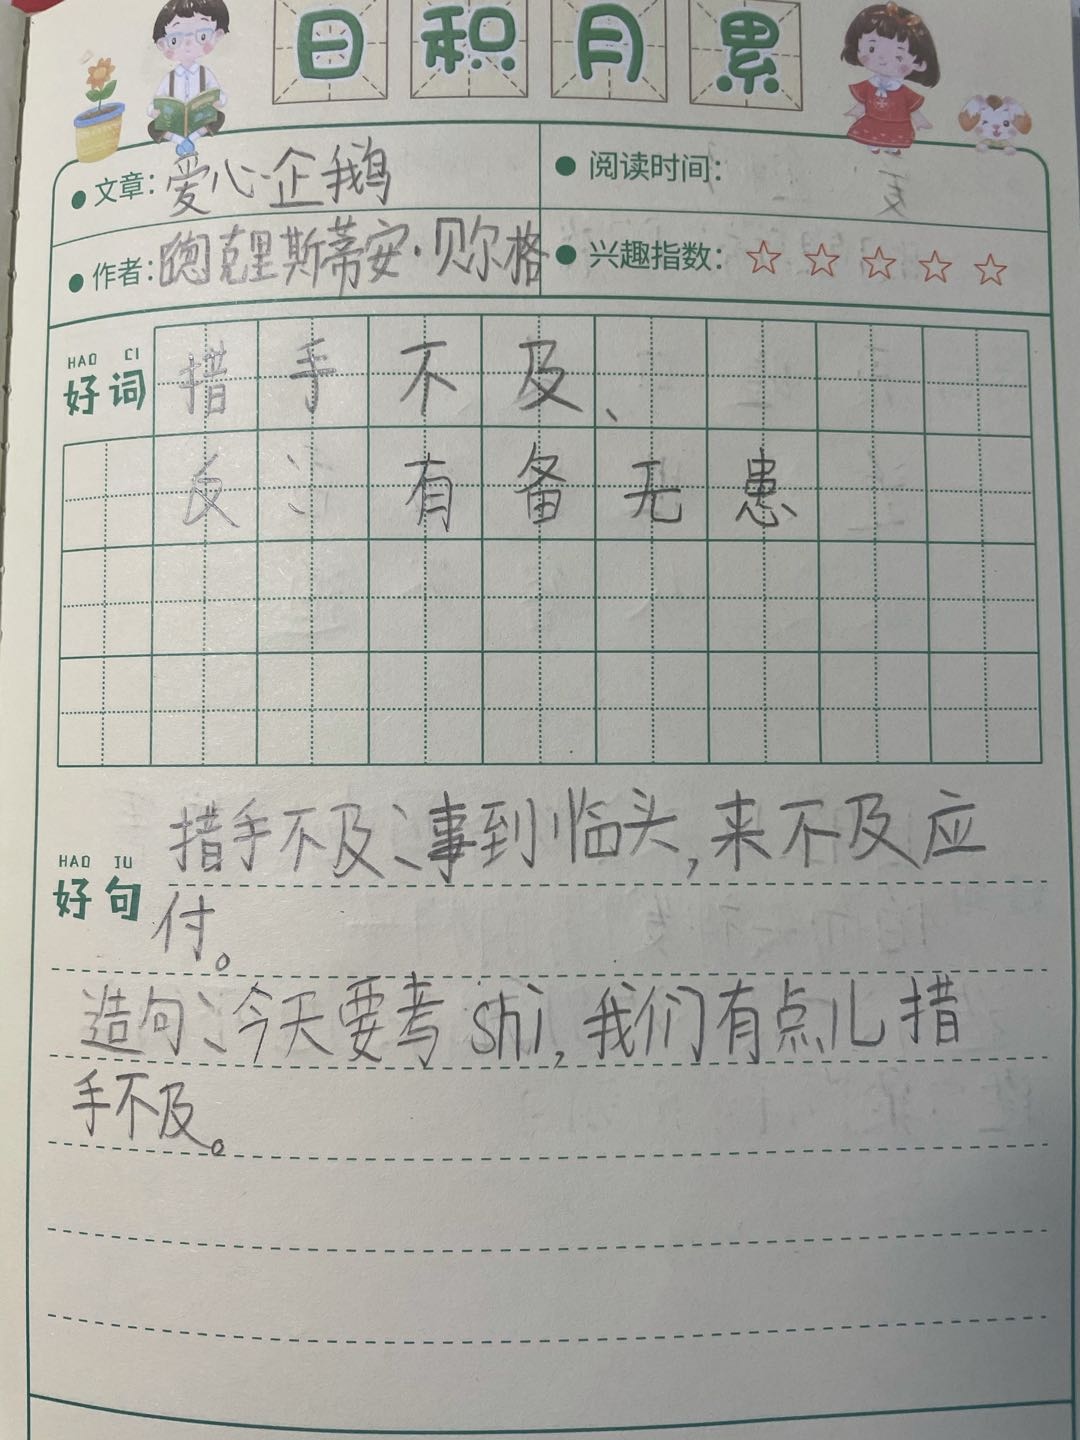 日积月累
文章：爱心企鹅
阅读时间：
作者：克里斯蒂安·贝尔格
兴趣指数：☆☆☆☆☆
HAO CI
好词
措手不及、
反 有备无患
HAO JU
好句
措手不及：事到临头，来不及应
付。
造句：今天要考shi，我们有点儿措
手不及。